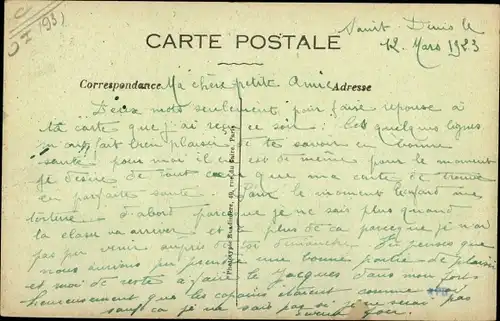 (93)
Saint Denis le
12 Mars 1923
CARTE POSTALE
Correspondance
Adresse
Ma chère petite Amie
Deux mots seulement pour faire reponse à
ta carte que j'ai reçu ce soir: Ces quelques lignes
m'ayant fait bien plaisir de te savoir en bonne
santé; pour moi il en est de même pour le moment
je désire de tout cœur que ma carte te trouve
en parfaite santé. Pour le moment
torture. D'abord parce que je ne sais plus quand
la classe va arriver et le plus de ça parceque je n'ai
pas pu venir auprès de toi dimanche. Tu penses que
nous aurions pu prendre une bonne partie de plaisir
et moi de reste à faire le Jacques dans mon fort.
heureusement que les copains étaient comme moi
sans ça je ne sais pas si je ne serai pas
Phototypie Baudinière, 40, rue du Caire, Paris